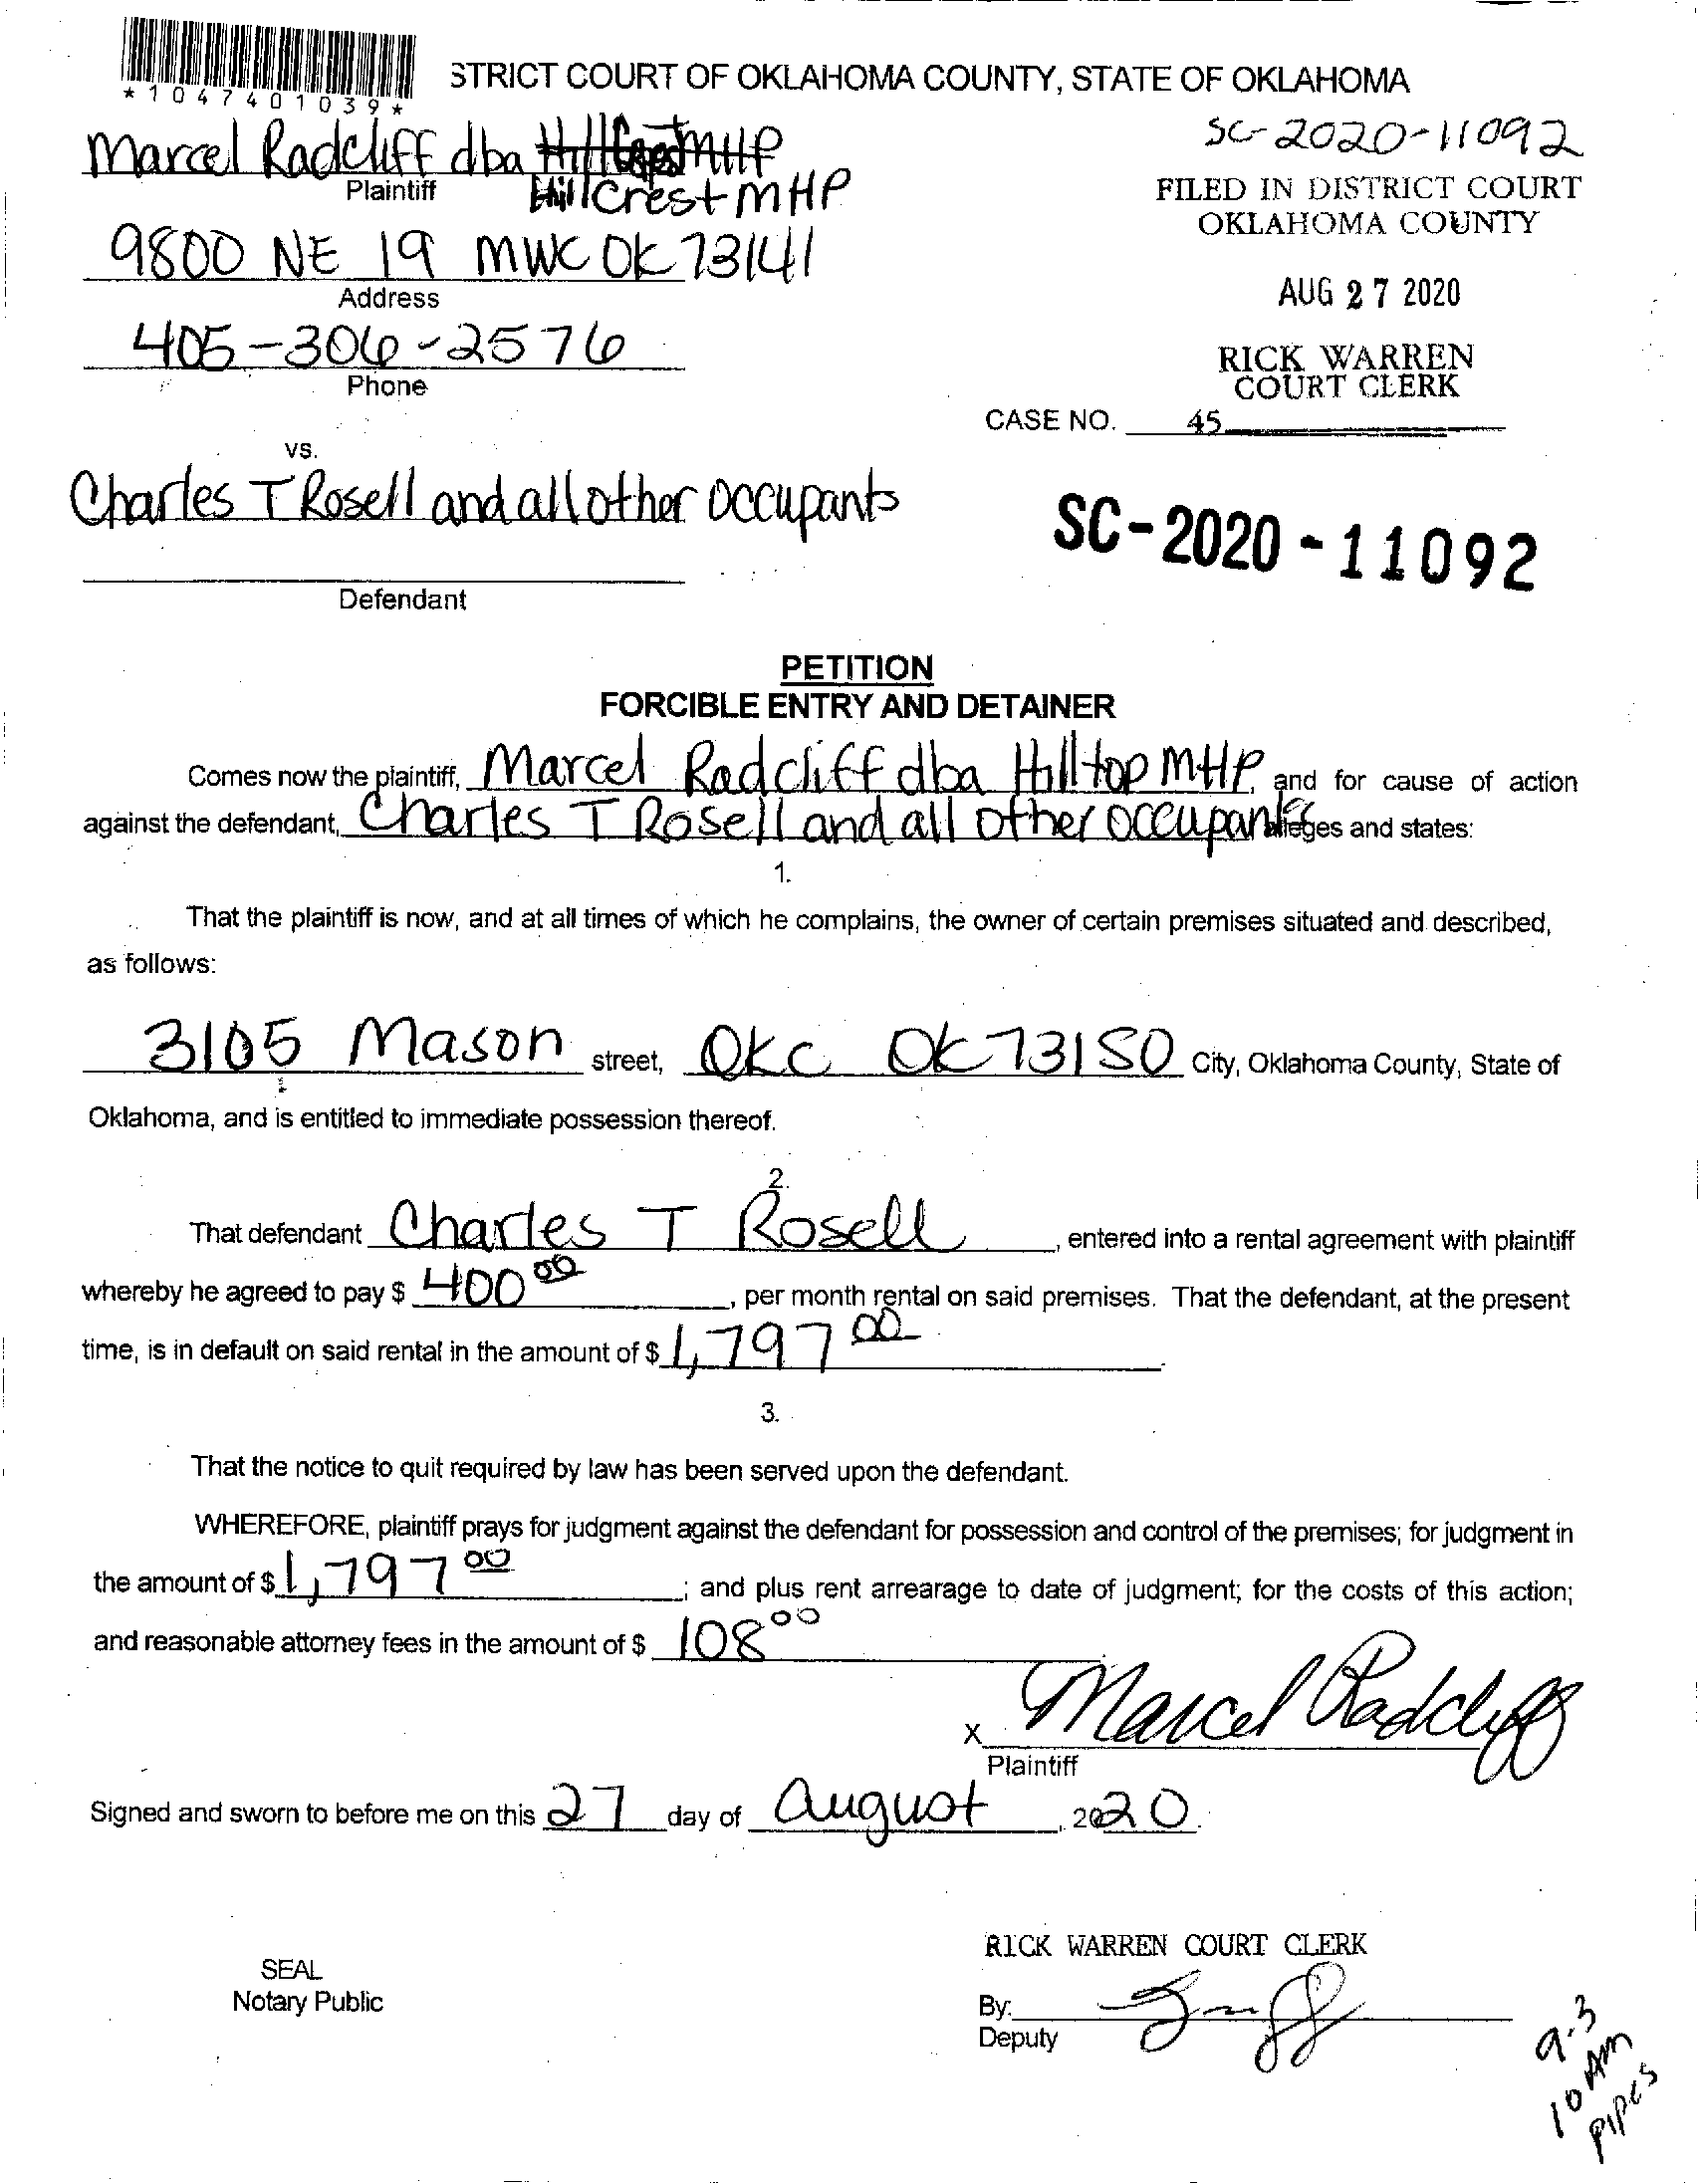 *1047401039*
STRICT COURT OF OKLAHOMA COUNTY, STATE OF OKLAHOMA
SC-2020-11092
Marcel Radcliff dba Hillcrest MHP
Plaintiff
Hillcrest MHP
FILED IN DISTRICT COURT
OKLAHOMA COUNTY
9800 NE 19 MWC OK 73141
Address
AUG 27 2020
405-306-2576
Phone
RICK WARREN
COURT CLERK
CASE NO. 45
vs.
Charles T Rosell and all other occupants
SC-2020-11092
Defendant
PETITION
FORCIBLE ENTRY AND DETAINER
Comes now the plaintiff, Marcel Radcliff dba Hilltop MHP, and for cause of action
against the defendant, Charles T Rosell and all other occupants alleges and states:
1.
That the plaintiff is now, and at all times of which he complains, the owner of certain premises situated and described,
as follows:
3105 Mason street, OKC OK 73150 City, Oklahoma County, State of
Oklahoma, and is entitled to immediate possession thereof.
2.
That defendant Charles T Rosell, entered into a rental agreement with plaintiff
whereby he agreed to pay $ 400 00, per month rental on said premises. That the defendant, at the present
time, is in default on said rental in the amount of $ 1,797 00.
3.
That the notice to quit required by law has been served upon the defendant.
WHEREFORE, plaintiff prays for judgment against the defendant for possession and control of the premises; for judgment in
the amount of $ 1,797 00; and plus rent arrearage to date of judgment; for the costs of this action;
and reasonable attorney fees in the amount of $ 108 00
X Marcel Radcliff
Plaintiff
Signed and sworn to before me on this 27 day of August, 2020.
RICK WARREN COURT CLERK
SEAL
Notary Public
By:
Deputy
9.3
10 AM
PIPES